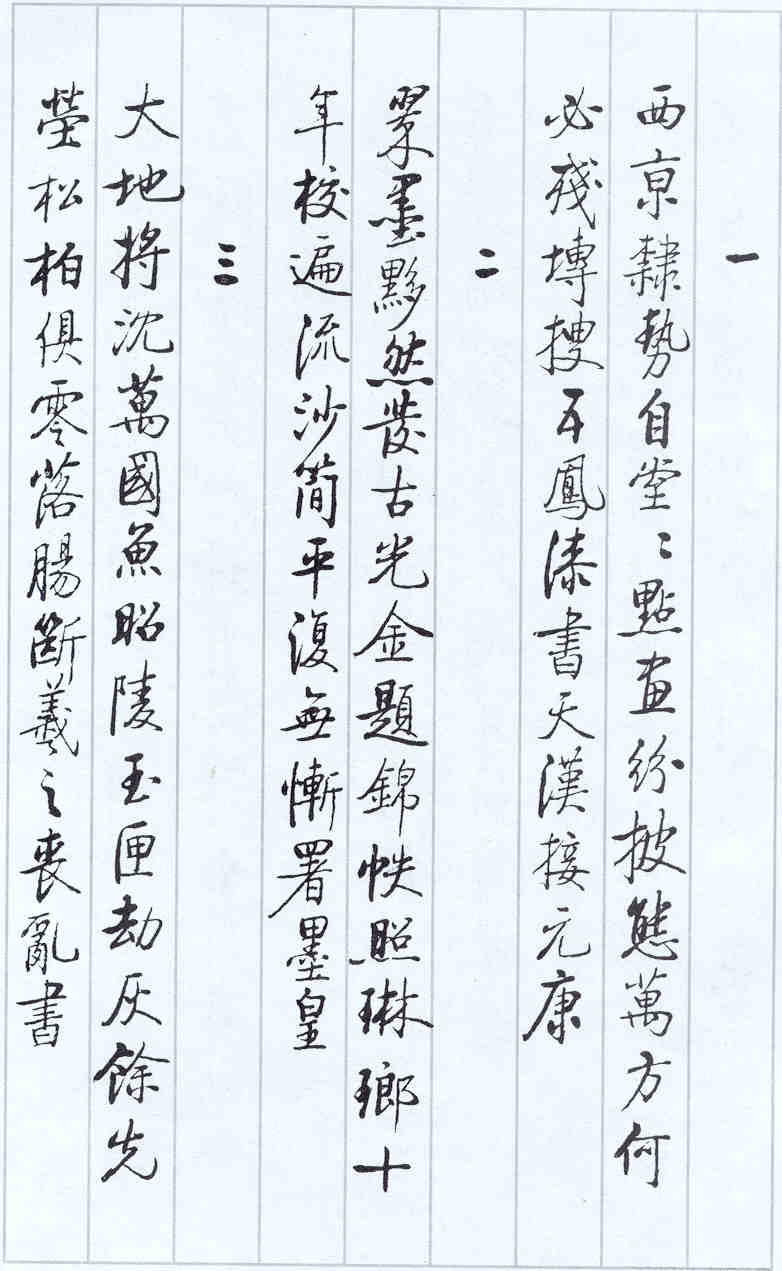 一
西京隸勢自堂〻點畫紛披態萬方何
必殘塼搜五鳳漆書天漢接元康
二
翠墨黟然發古光金題錦帙照琳瑯十
年校遍流沙簡平復無慚署墨皇
三
大地將沈萬國魚昭陵玉匣劫灰餘先
塋松柏俱零落腸斷羲之喪亂書